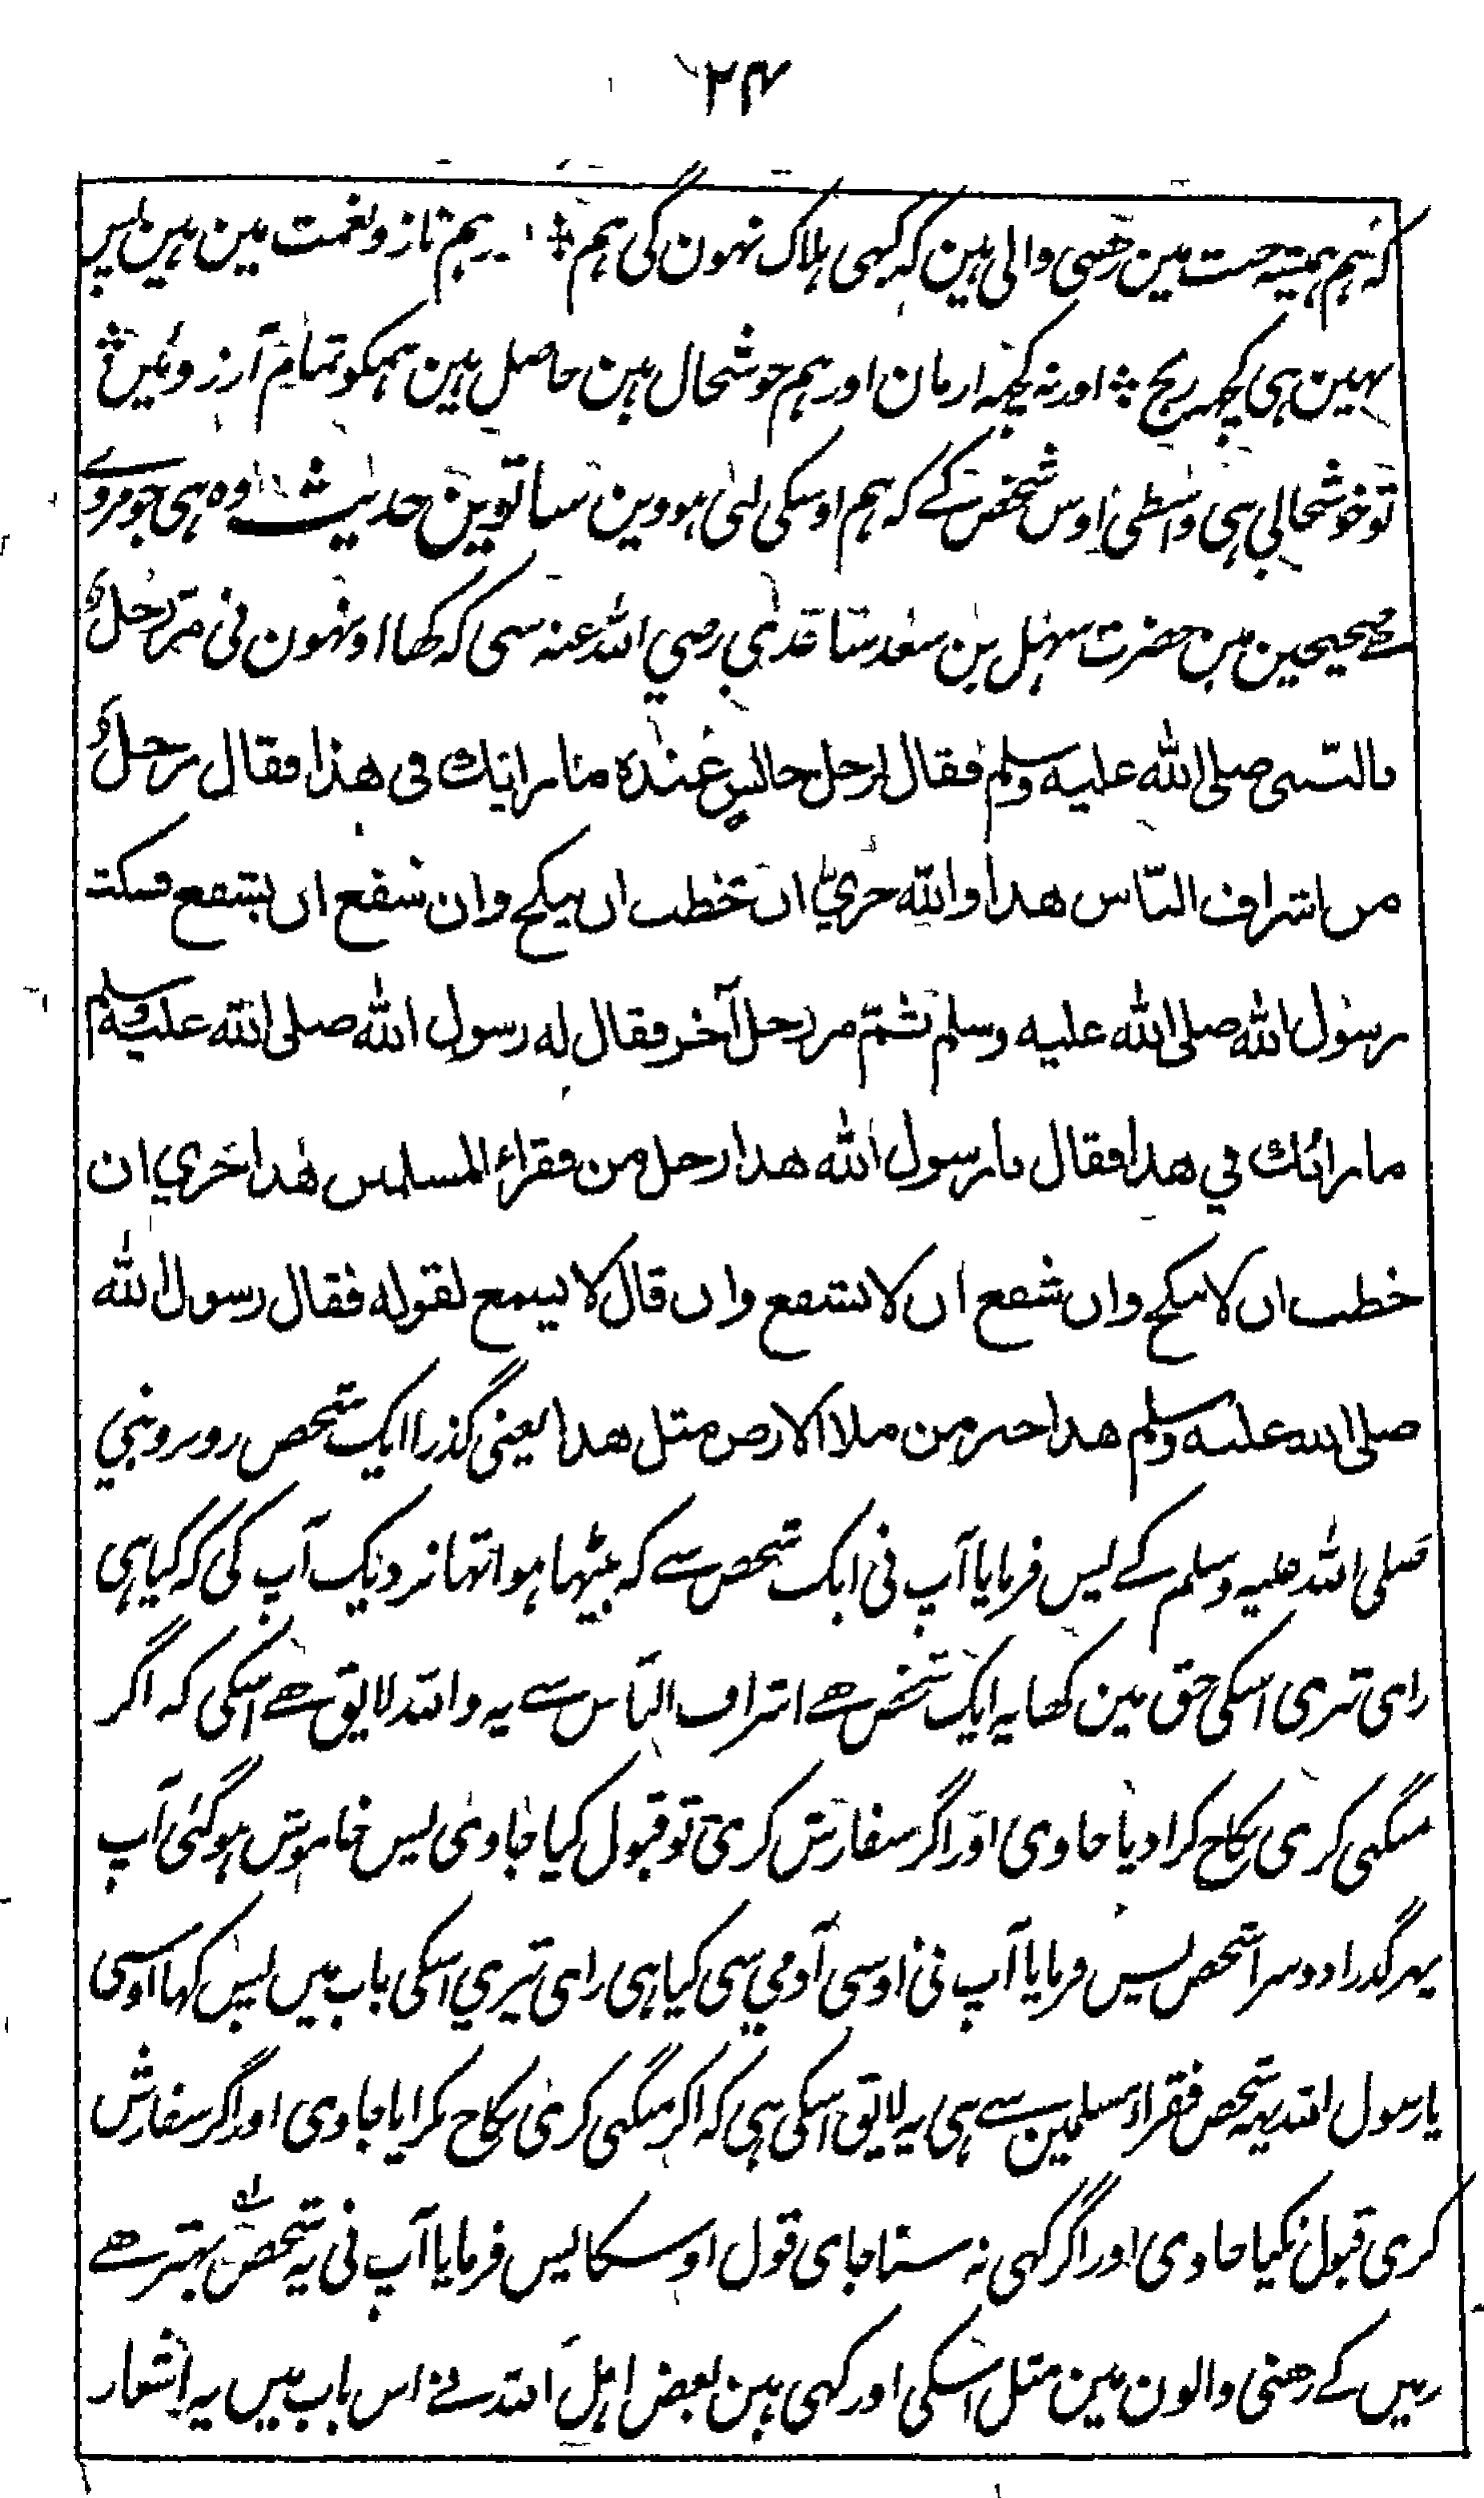 ۲۳
کہ ہم ہمیشہ جنت مین رھنی والی ہین کہ کبہی ہلاک نہون گی ہم ؞ ہم ناز و نعمت مین ہین پر
نہین ہی کچہہ رنج ؞ اور نہ کچہہ ارمان اور ہم خوشحال ہین حاصل ہین ہمکو تمام آرزوئین ؞
تو خوشحالی ہی واسطی اوس شخص کے کہ ہم اوسکی لئی ہووین ساتوین حدیث وہ ہی جو مروے
ھے صحیحین مین حضرت سہل بن سعد ساعدی رضی اللہ عنہ سی کہ کہا اونہون نی مَرَّ رَجُلٌ
بالنّبی صلی الله علیه وسلم فقال لرجل جالسٍ عنده ما رایك فی هذا فقال رجلٌ
من اشراف النّاس هذا والله حريٌّ ان خطب ان ینکح وان شفع ان یشفع فسکت
رسول الله صلی الله علیه وسلم ثمّ مر رجل آخر فقال له رسول الله صلی الله علیه وسلم
ما رایك في هذا فقال یا رسول الله هذا رجل من فقراء المسلمین هذا حَري ان
خطب ان لا ینکح وان شفع ان لا یشفع وان قال لا یسمع لقوله فقال رسول الله
صلی الله علیه وسلم هذا خیر من ملاا الارض مثل هذا یعنی گذرا ایک شخص روبرو نبی
صلی اللہ علیہ وسلم کے پس فرمایا آپ نی ایک شخص سے کہ بیٹہا ہوا تہا نزدیک آپ کی کہ کیا ہی
رای تیری اسکی حق مین کہا یہ ایک شخص ھے اشراف الناس سے یہ واللہ لایق ھے اسکی کہ اگر
منگنی کری نکاح کرا دیا جاوی اور اگر سفارش کری تو قبول کیا جاوی پس خاموش ہوگئی آپ
پہر گذرا دوسرا شخص پس فرمایا آپ نی اوسی آدمی سی کیا ہی رای تیری اسکی باب مین پس کہا اوسی
یا رسول اللہ یہہ شخص فقراء مسلمین سے ہی یہ لایق اسکی ہی کہ اگر منگنی کری نکاح نکرایا جاوی اور اگر سفارش
کری قبول نکیا جاوی اور اگر کہی نہ سنا جای قول اوسکا پس فرمایا آپ نی یہ شخص بہتر ھے
زمین کے رھنی والون مین مثل اسکی اور کہی ہین بعض اہل اللہ نے اس باب مین یہ اشعار